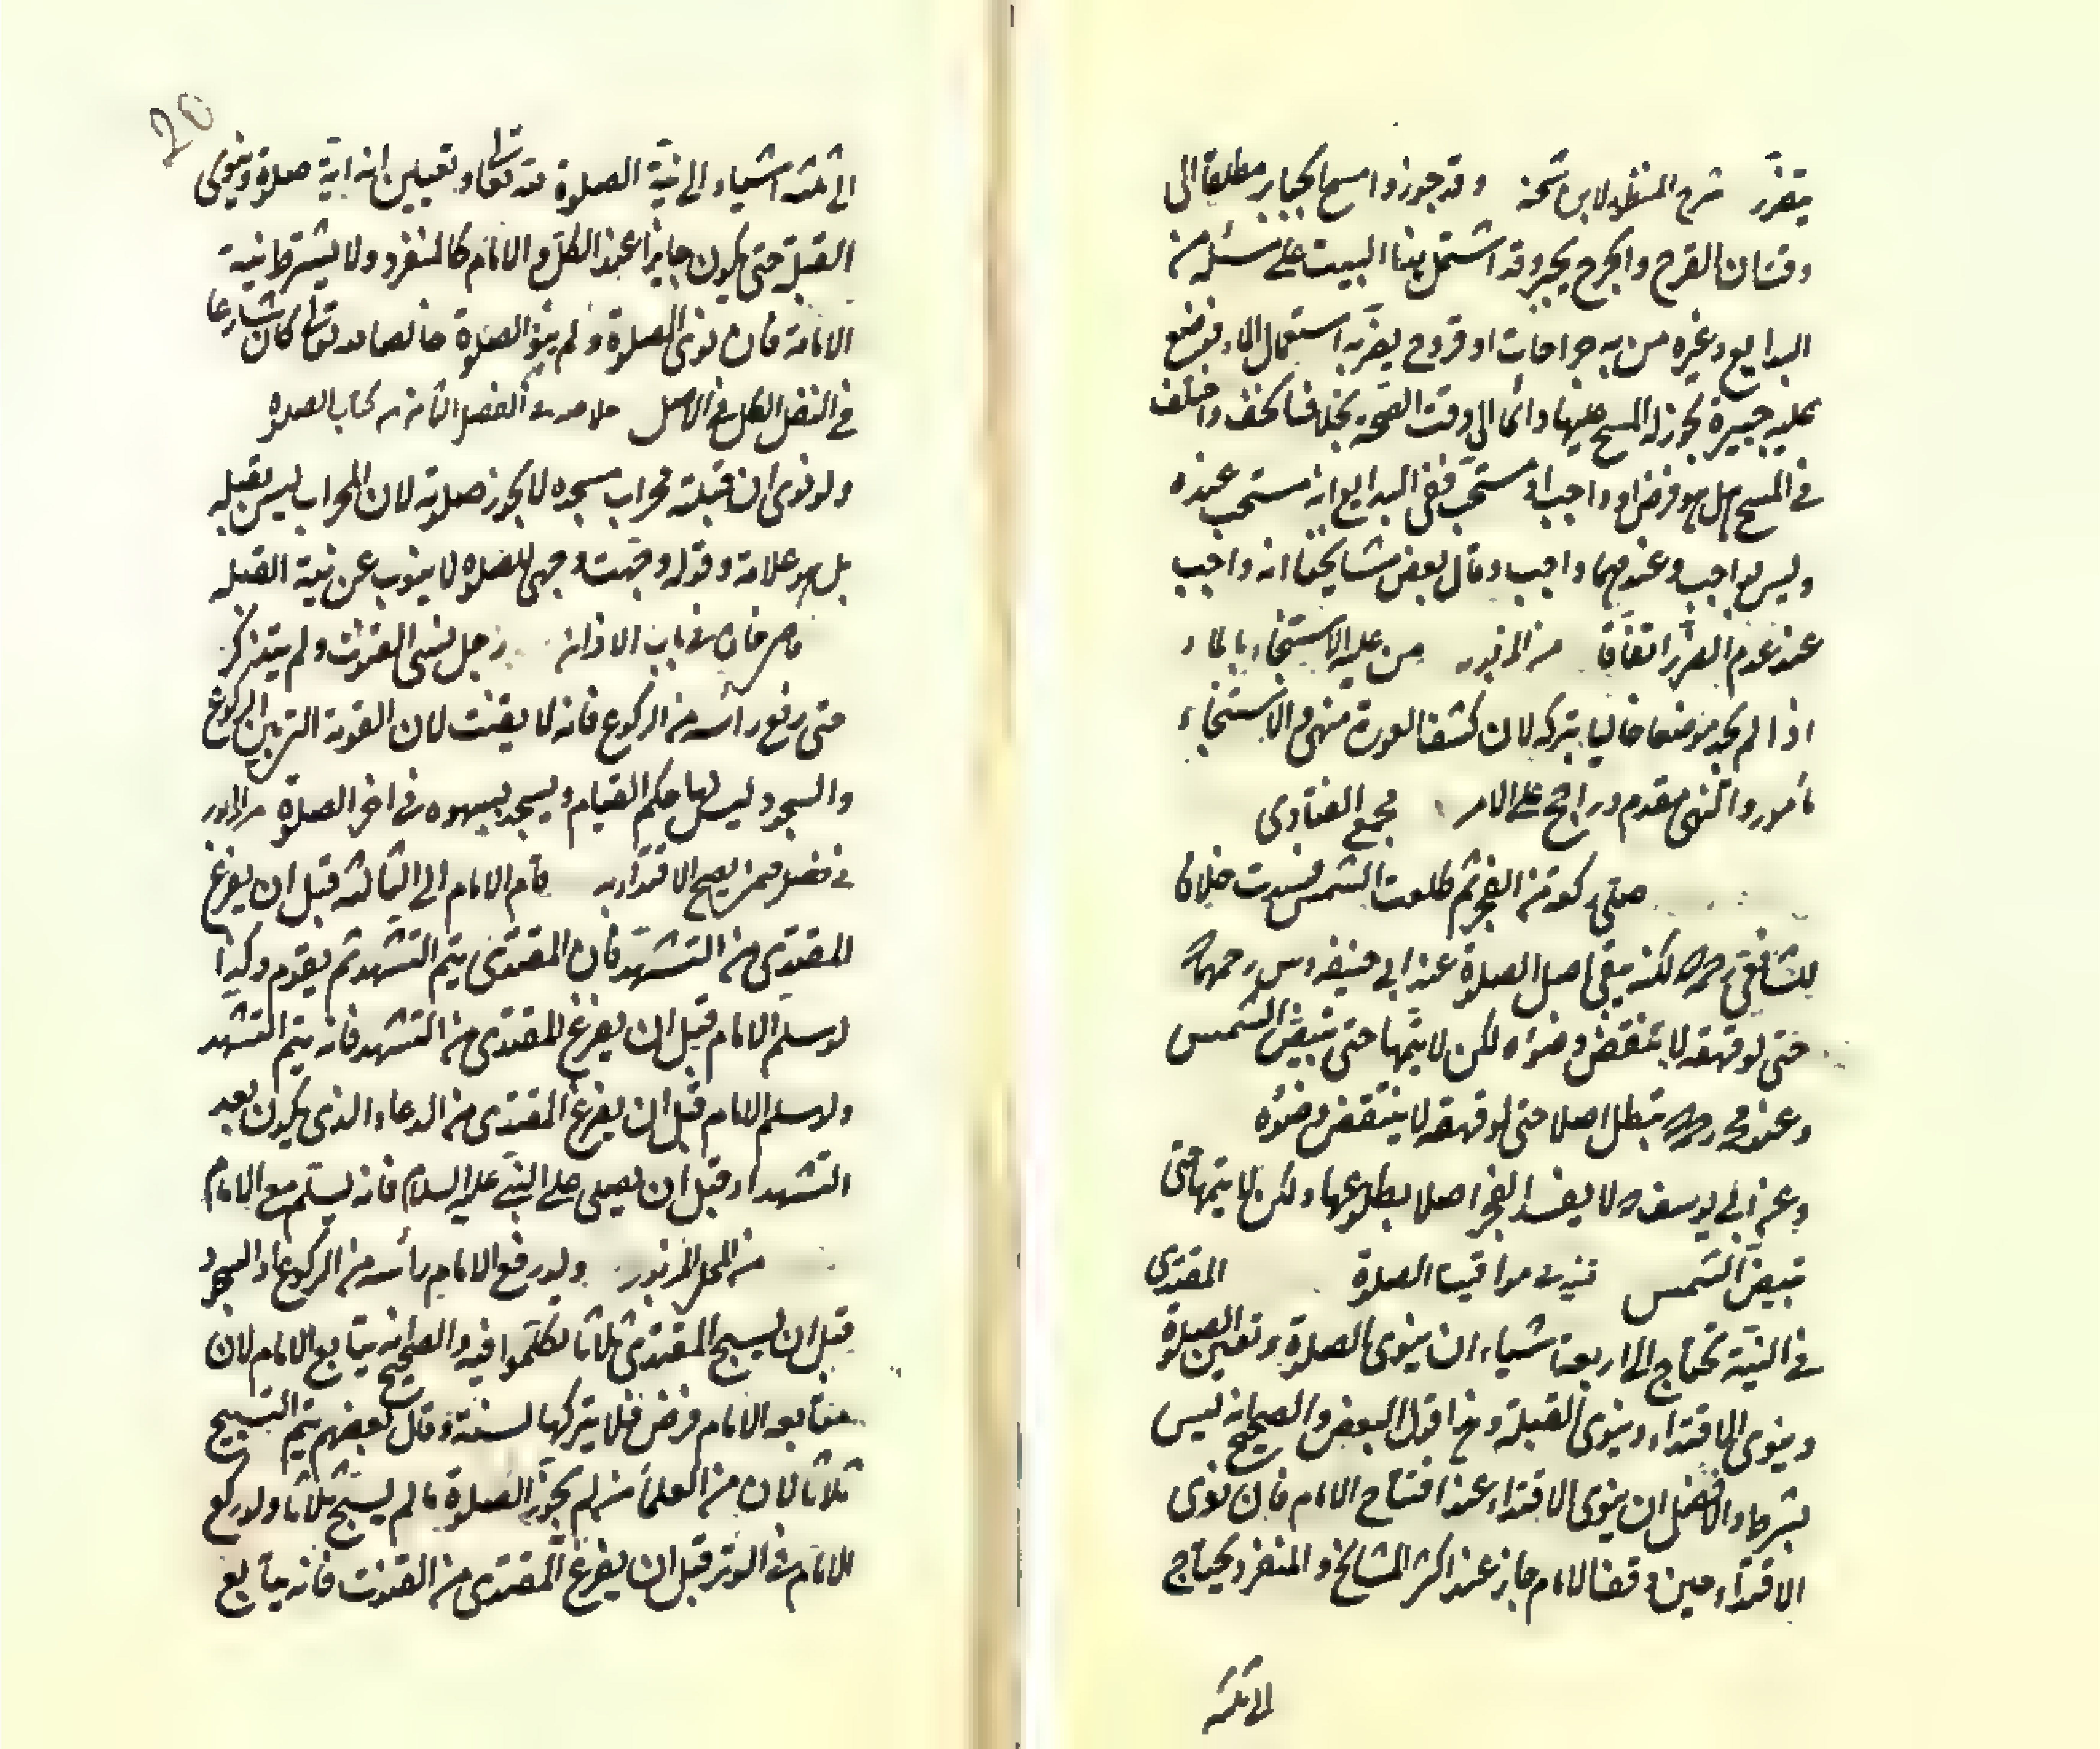 يتضرر شرح المنظومة لابن شحنة وقد جوزوا مسح الجباير مطلقا الى
وقتان القرح والجرح يجبر وقد اشتمل بنا البيت على مسئلة من
البدايع وغيره من به جراحات او قروح يضر به استعمال الماء فوضع
عليه جبيرة يجوز له المسح عليها دائما الى وقت الصحة بخلاف الخف واختلف
في المسح هل هو فرض او واجب او مستحب ففى البدايع انه مستحب عنده
وليس بواجب وعندهما واجب وقال بعض مشايخنا انه واجب
عند عدم الضرر اتفاقا من المزبور من عليه الاستنجاء بالماء
اذا لم يجد موضعا خاليا يتركه لان كشف العورة منهى والاستنجاء
مأمور والنهى مقدم وراجح على الامر مجمع الفتاوى
صلى ركعة من الفجر ثم طلعت الشمس فسدت خلافا
للشافعى رحمه لكنه يبقى اصل الصلوة عند ابى حنيفه وس رحمهما
حتى لو قهقه لا تنقض وضوءه لكن لا يتمها حتى تبيض الشمس
وعند محمد رحمه تبطل اصلا حتى لو قهقه لا ينتقض وضوءه
وعن ابى يوسف لا يفسد الفجر اصلا بطلوعها ولكن لا يتمها حتى
تبيض الشمس قنيه فى مواقيت الصلوة المقتدى
في النية تحتاج الى اربعة اشياء ان ينوى الصلوة وتعين الصلوة
وينوى الاقتداء وينوى القبلة وهذا قول البعض والصحيح انه ليس
بشرط والافضل ان ينوى الاقتداء عند افتتاح الامام فان نوى
الاقتداء حين وقف الامام جاز عند اكثر المشايخ والمنفرد يحتاج
الى ثلثه
20
الى ثلثه اشياء الى نية الصلوة لله تعالى وتعيين انه اية صلوة وينوى
القبلة حتى يكون جايزا عند الكل والامام كالمنفرد ولا يشترط نية
الامامة فان نوى الصلوة ولم ينو الصلوة خالصا لله تعالى كان شارعا
في النفل الكل فى الاصل خلاصه فى الفصل الثامن من كتاب الصلوه
ولو نوى ان قبلته محراب مسجده لا يجوز صلوته لان المحراب ليس بقبله
بل هو علامة وقوله وجهت وجهى للصلوه لا ينوب عن نية القبله
قاضيخان فى باب الاذان رجل نسى القنوت ولم يتذكر
حتى رفع رأسه من الركوع فانه لا يقنت لان القومة التى بين الركوع
والسجود ليس لها حكم القيام ويسجد بسهوه فى اخر الصلوة من المزبور
فى فصل فيمن يصح الاقتداء به قام الامام الى الثالثه قبل ان يفرغ
المقتدى من التشهد فان المقتدى يتم التشهد ثم يقوم وكذا
لو سلم الامام قبل ان يفرغ المقتدى من التشهد فانه يتم التشهد
ولو سلم الامام قبل ان يفرغ المقتدى من الدعاء الذى يكون بعد
التشهد او قبل ان يصلى على النبى عليه السلام فانه يسلم مع الامام
من المحل المزبور ولو رفع الامام رأسه من الركوع او السجود
قبل ان يسبح المقتدى ثلاثا تكلموا فيه والصحيح انه يتابع الامام لان
متابعه الامام فرض فلا يتركها لسنة وقال بعضهم يتم التسبيح
ثلاثا لان من العلماء من لم يجوز الصلوة ما لم يسبح ثلاثا ولو ركع
الامام فى الوتر قبل ان يفرغ المقتدى من القنوت فانه يتابع